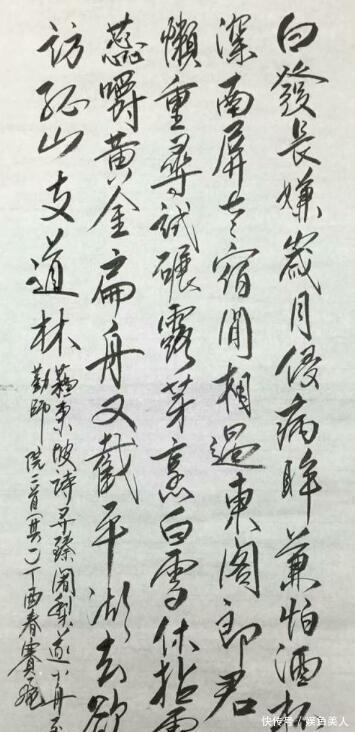 白發長嫌歲月侵病眸兼怕酒杯
深南屏老宿閒相過東閣郎君
懶重尋試碾露芽烹白雪休拈霜
蕊嚼黃金扁舟又截平湖去欲
訪孤山支道林
蘇東坡詩尋臻闍梨遂小舟至
勤師院二首(其一)丁酉春
快传号